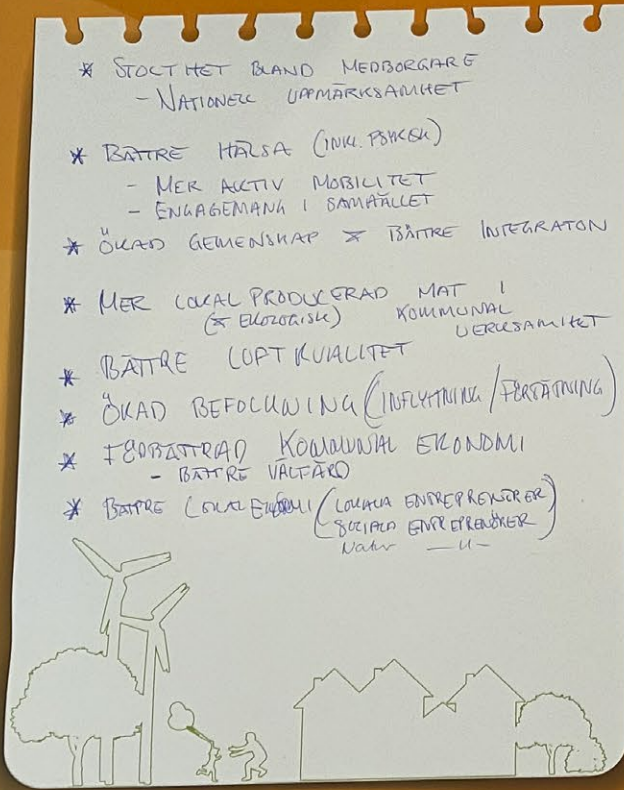 * STOLTHET BLAND MEDBORGARE
- NATIONELL UPPMÄRKSAMHET
* BÄTTRE HÄLSA (INKL. PSYKISK)
- MER AKTIV MOBILITET
- ENGAGEMANG I SAMHÄLLET
* ÖKAD GEMENSKAP & BÄTTRE INTEGRATON
* MER LOKALPRODUCERAD MAT I
(& EKOLOGISK) KOMMUNAL
VERKSAMHET
* BÄTTRE LUFTKVALITET
* ÖKAD BEFOLKNING (INFLYTTNING / FÖRTÄTNING)
* FÖRBÄTTRAD KOMMUNAL EKONOMI
- BÄTTRE VÄLFÄRD
* BÄTTRE LOKAL EKONOMI (LOKALA ENTREPRENÖRER
SOCIALA ENTREPRENÖRER)
Natur —"—